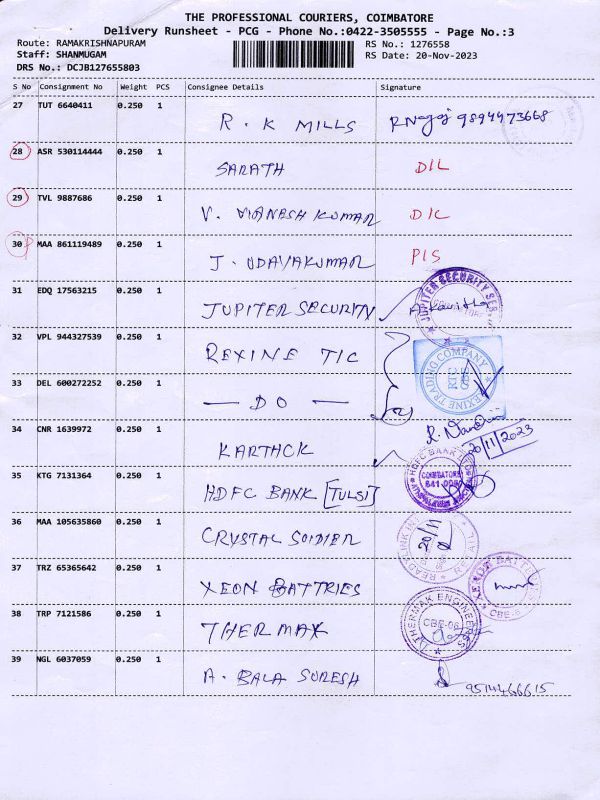 THE PROFESSIONAL COURIERS, COIMBATORE
Delivery Runsheet - PCG - Phone No.:0422-3505555 - Page No.:3
Route: RAMAKRISHNAPURAM RS No.: 1276558
Staff: SHANMUGAM RS Date: 20-Nov-2023
DRS No.: DCJB127655803
S No Consignment No Weight PCS Consignee Details Signature
27 TUT 6640411 0.250 1 R. K MILLS 9894473668
28 ASR 530114444 0.250 1 SARATH D/L
29 TVL 9887686 0.250 1 V. VIGNESH KUMAR D/C
30 MAA 861119489 0.250 1 J. UDAYAKUMAR P/S
31 EDQ 17563215 0.250 1 JUPITER SECURITY JUPITER SECURITY SER
32 VPL 944327539 0.250 1 REXINE T/C REXINE TRADING COMPANY
33 DEL 600272252 0.250 1 — DO —
34 CNR 1639972 0.250 1 KARTHCK 20/11/2023
35 KTG 7131364 0.250 1 HDFC BANK [TULSI] HDFC BANK LTD COIMBATORE
36 MAA 105635860 0.250 1 CRYSTAL SOIDIER 20/11
37 TRZ 65365642 0.250 1 XEON BATTRIES CBE-6
38 TRP 7121586 0.250 1 THERMAX THERMAX ENGINEERS CBE-06
39 NGL 6037059 0.250 1 A. BALA SURESH 9514466615